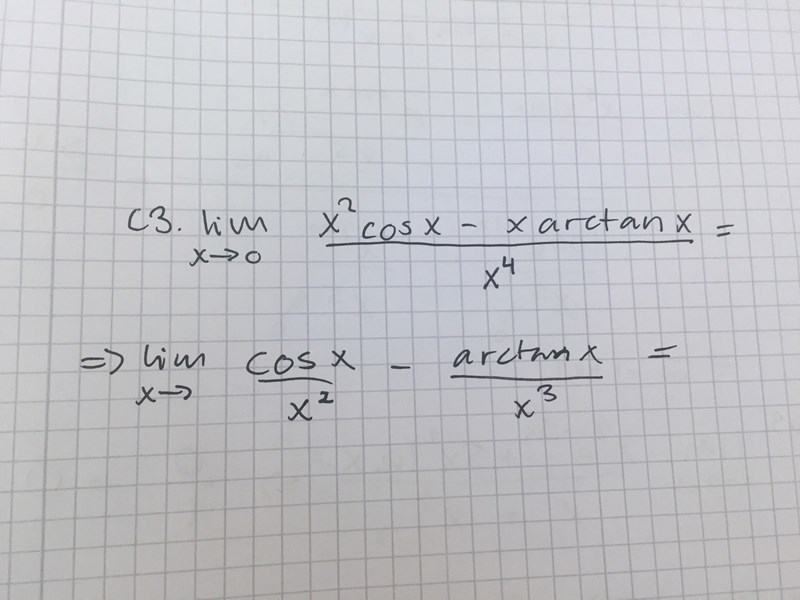 C3. lim x→0 (x² cos x - x arctan x) / x⁴ =
=> lim x→ cos x / x² - arctan x / x³ =